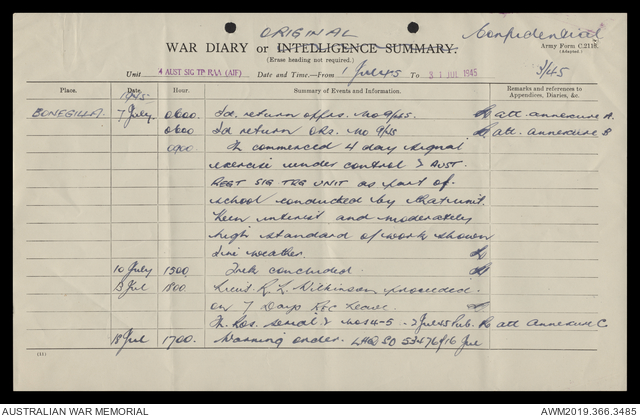 ORIGINAL
Confidential
WAR DIARY or INTELLIGENCE SUMMARY.
(Erase heading not required.)
Army Form C.2118.
(Adapted.)
Unit 4 AUST SIG TP RAA (AIF) Date and Time—From 1 July 45 To 31 JUL 1945
7/45
Place. Date. Hour. Summary of Events and Information. Remarks and references to Appendices, Diaries, &c.
1945
BONEGILLA. 7 July 0600. Fd. return offrs. No 9/45 att. annexure A.
0600 Fd return ORs. No 9/45 att. annexure B
0900 commenced 4 day signal
exercise under control AUST
REGT SIG TRG UNIT as part of
school conducted by that unit.
Keen interest and moderately
high standard of work shown
Fine weather.
10 July 1500 Trek concluded.
13 Jul 1800 Lieut. R. L. Wilkinson proceeded
on 7 Days Rec Leave.
Ros. serial No 14-5 - 2 Jul 45 Pub. att annexure C
18 Jul 1700. Warning order. LHQ SD 53476 16 Jul
(11)
AUSTRALIAN WAR MEMORIAL
AWM2019.366.3485